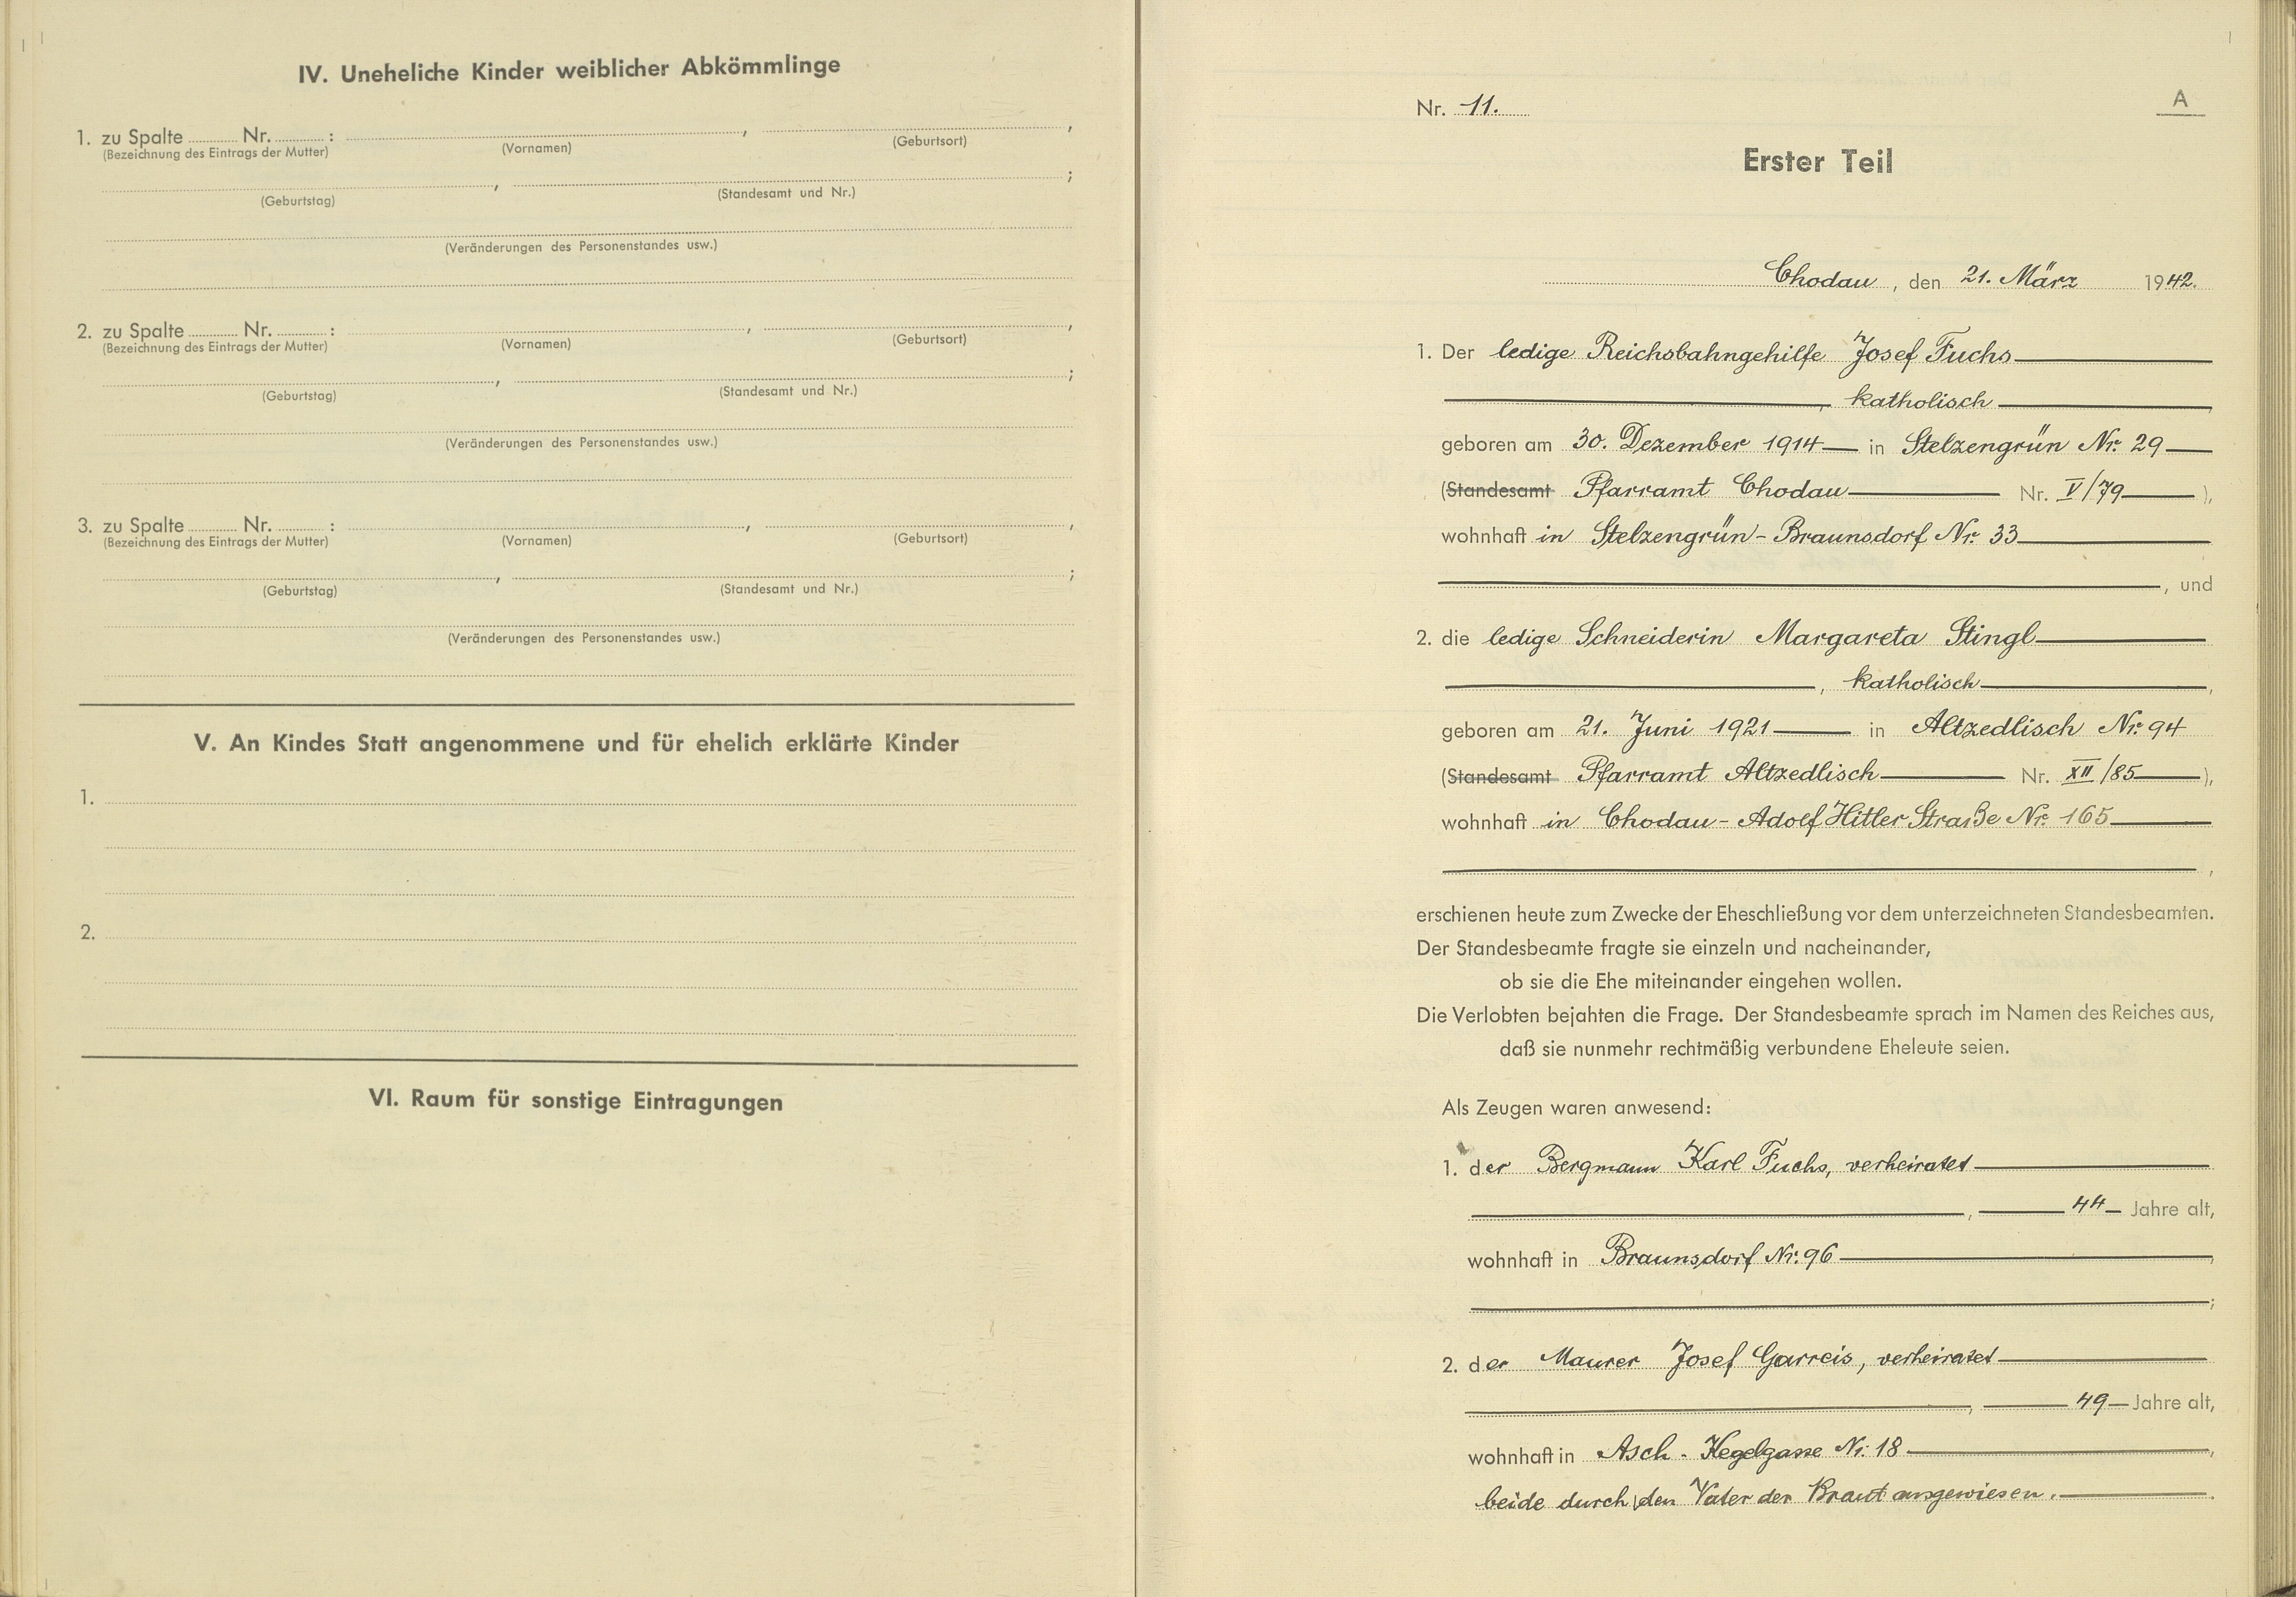 IV. Uneheliche Kinder weiblicher Abkömmlinge
1. zu Spalte ........ Nr. ........ : ........ , ........ ,
(Bezeichnung des Eintrags der Mutter) (Vornamen) (Geburtsort)
........ , ........ ;
(Geburtstag) (Standesamt und Nr.)
(Veränderungen des Personenstandes usw.)
2. zu Spalte ........ Nr. ........ : ........ , ........ ,
(Bezeichnung des Eintrags der Mutter) (Vornamen) (Geburtsort)
........ , ........ ;
(Geburtstag) (Standesamt und Nr.)
(Veränderungen des Personenstandes usw.)
3. zu Spalte ........ Nr. ........ : ........ , ........ ,
(Bezeichnung des Eintrags der Mutter) (Vornamen) (Geburtsort)
........ , ........ ;
(Geburtstag) (Standesamt und Nr.)
(Veränderungen des Personenstandes usw.)
V. An Kindes Statt angenommene und für ehelich erklärte Kinder
1.
2.
VI. Raum für sonstige Eintragungen
Nr. 11. A
Erster Teil
Chodau, den 21. März 1942.
1. Der ledige Reichsbahngehilfe Josef Fuchs
, katholisch
geboren am 30. Dezember 1914 in Stelzengrün Nr. 29
(Standesamt Pfarramt Chodau Nr. V/79),
wohnhaft in Stelzengrün - Braunsdorf Nr. 33
, und
2. die ledige Schneiderin Margareta Stingl
, katholisch,
geboren am 21. Juni 1921 in Altzedlisch Nr. 94
(Standesamt Pfarramt Altzedlisch Nr. XII/85),
wohnhaft in Chodau - Adolf Hitler Straße Nr. 165
,
erschienen heute zum Zwecke der Eheschließung vor dem unterzeichneten Standesbeamten.
Der Standesbeamte fragte sie einzeln und nacheinander,
ob sie die Ehe miteinander eingehen wollen.
Die Verlobten bejahten die Frage. Der Standesbeamte sprach im Namen des Reiches aus,
daß sie nunmehr rechtmäßig verbundene Eheleute seien.
Als Zeugen waren anwesend:
1. der Bergmann Karl Fuchs, verheiratet
, 44 Jahre alt,
wohnhaft in Braunsdorf Nr. 96,
;
2. der Maurer Josef Garreis, verheiratet
, 49 Jahre alt,
wohnhaft in Asch - Kegelgasse Nr. 18,
beide durch den Vater der Braut ausgewiesen.